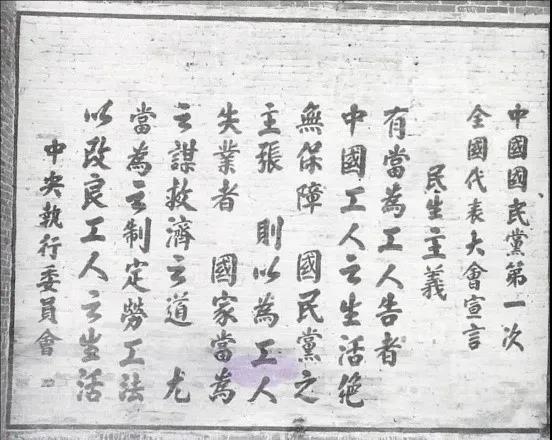 中國國民黨第一次
全國代表大會宣言
民生主義
有當為工人告者
中國工人之生活絕
無保障 國民黨之
主張 則以為工人
失業者 國家當為
之謀救濟之道 尤
當為之制定勞工法
以改良工人之生活
中央執行委員會